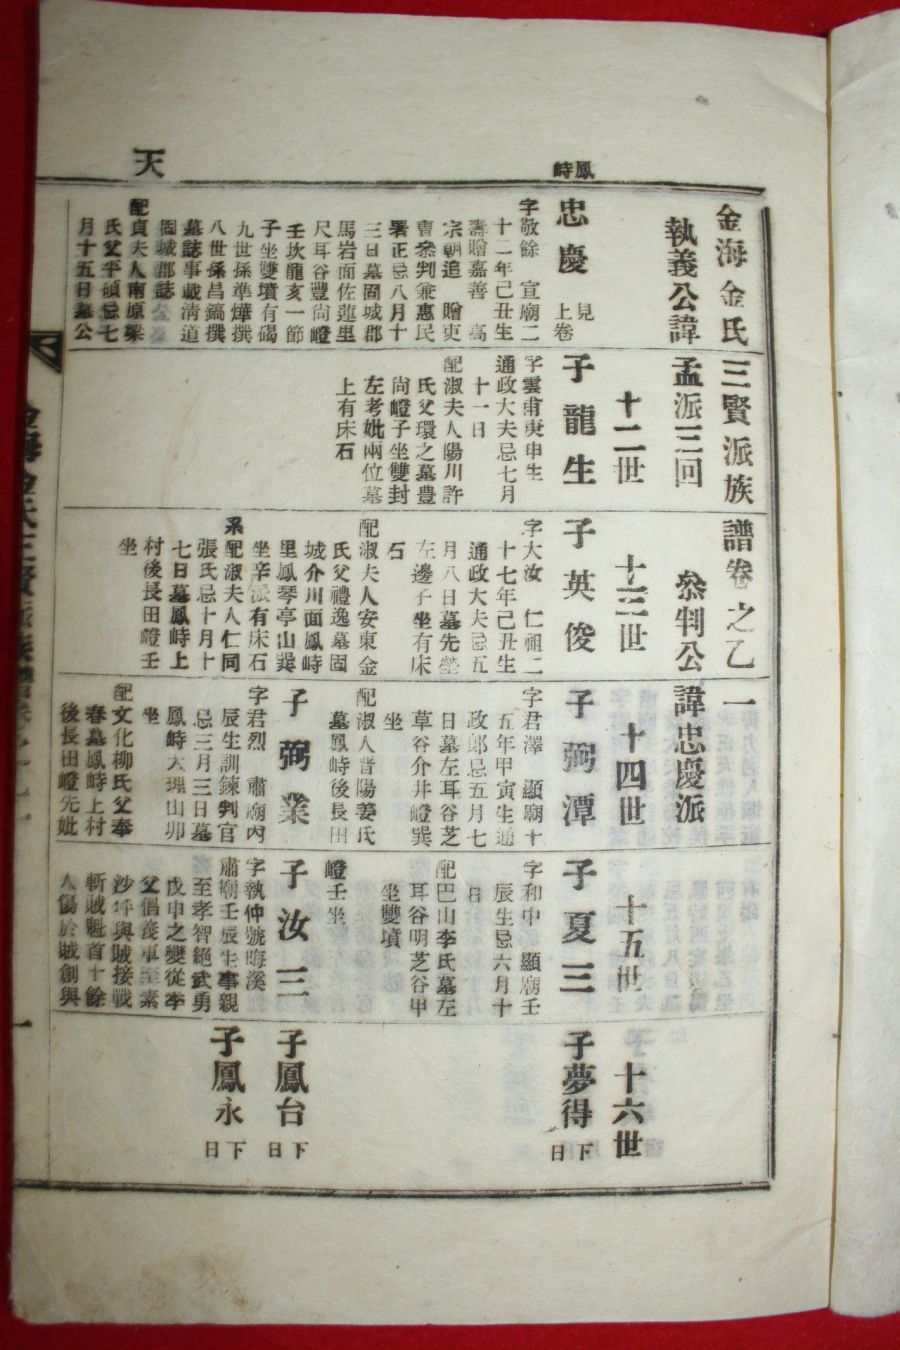 天
鳳時
金海金氏三賢派族譜卷之乙一
執義公諱孟派三回 叅判公諱忠慶派
忠慶 見上卷
字敬餘 宣廟二
十二年己丑生
壽贈嘉善 高
宗朝追 贈吏
曹叅判兼惠民
署正忌八月十
三日墓固城郡
馬岩面佐蓮里
尺耳谷豐尙嶝
壬坎龍亥一節
子坐雙墳有碣
九世孫準燁撰
八世孫昌鎬撰
墓誌事載淸道
固城郡誌
配貞夫人南原梁
氏父平碩忌七
月十五日墓公
十二世
子龍生
字雲甫庚申生
通政大夫忌七月
十一日
配淑夫人陽川許
氏父環之墓豊
尙嶝子坐雙封
左考妣兩位墓
上有床石
十三世
子英俊
字大汝 仁祖二
十七年己丑生
通政大夫忌五
月八日墓先塋
左邊子坐有床
石
配淑夫人安東金
氏父禮逸墓固
城介川面鳳時
里鳳琴亭山巽
坐辛派有床石
系配淑夫人仁同
張氏忌十月十
七日墓鳳時上
村後長田嶝壬
坐
十四世
子弼潭
字君澤 顯廟十
五年甲寅生通
政郞忌五月七
日墓左耳谷芝
草谷介井嶝巽
坐
配淑人晋陽姜氏
墓鳳峙後長田
嶝壬坐
子弼業
字君烈 肅廟丙
辰生訓鍊判官
忌三月三日墓
鳳峙大理山卯
坐
配文化柳氏父奉
春墓鳳峙上村
後長田嶝先妣
十五世
子夏三
字和中 顯廟壬
辰生忌六月十
日
配巴山李氏墓左
耳谷明芝谷甲
坐雙墳
子汝三
字執仲號晦溪
肅廟壬辰生事親
至孝智絕武勇
戊申之變從李
父倡義軍至素
沙坪與賊接戰
斬賊魁首十餘
人傷於賊創與
十六世
子夢得 下日
子鳳台 下日
子鳳永 下日
一